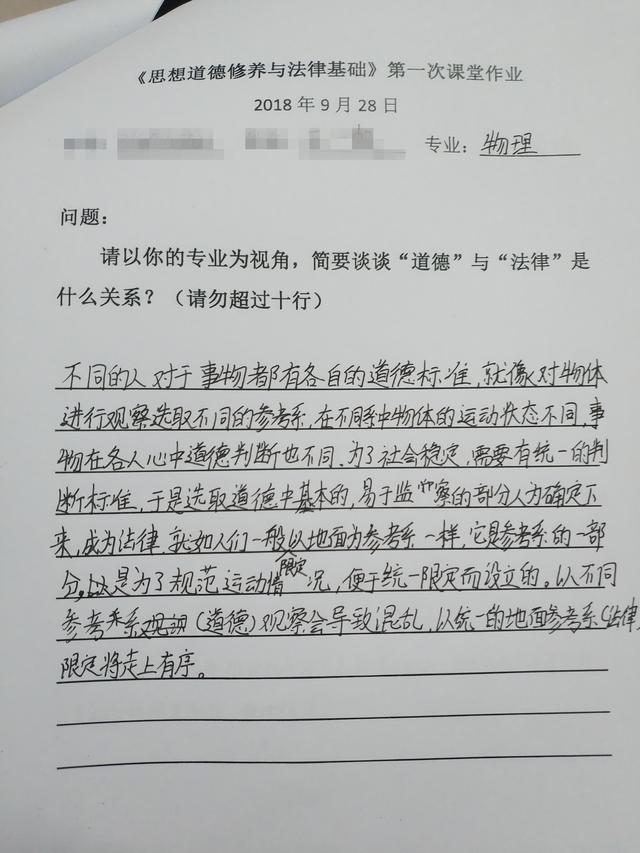 《思想道德修养与法律基础》第一次课堂作业
2018 年 9 月 28 日
专业：物理
问题：
请以你的专业为视角，简要谈谈“道德”与“法律”是
什么关系？（请勿超过十行）
不同的人对于事物都有各自的道德标准，就像对物体
进行观察选取不同的参考系，在不同系中物体的运动状态不同，事
物在各人心中道德判断也不同。为了社会稳定，需要有统一的判
断标准，于是选取道德中基本的，易于监察的部分人为确定下
来，成为法律。就如人们一般以地面为参考系一样，它是参考系的一部
分。是为了规范限定运动情况，便于统一限定而设立的。以不同
参考系（道德）观察会导致混乱，以统一的地面参考系（法律）
限定将走上有序。